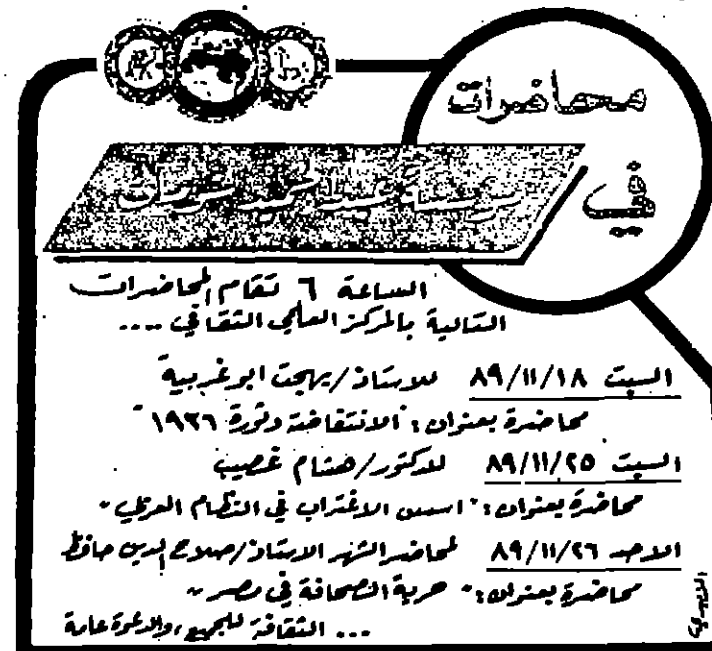 محاضرات
في
مؤسسة عبد الحميد شومان
الساعة ٦ تقام المحاضرات
التالية بالمركز العلمي الثقافي ....
السبت ٨٩/١١/١٨ للاستاذ/بهجت ابو غربية
محاضرة بعنوان: "الانتفاضة وثورة ١٩٣٦"
السبت ٨٩/١١/٢٥ للدكتور/هشام غصيب
محاضرة بعنوان: "اسس الاغتراب في النظام العربي"
الاحد ٨٩/١١/٢٦ لمحاضر الشهر الاستاذ/صلاح الدين حافظ
محاضرة بعنوان: "حرية الصحافة في مصر"
... الثقافة للجميع، والدعوة عامة